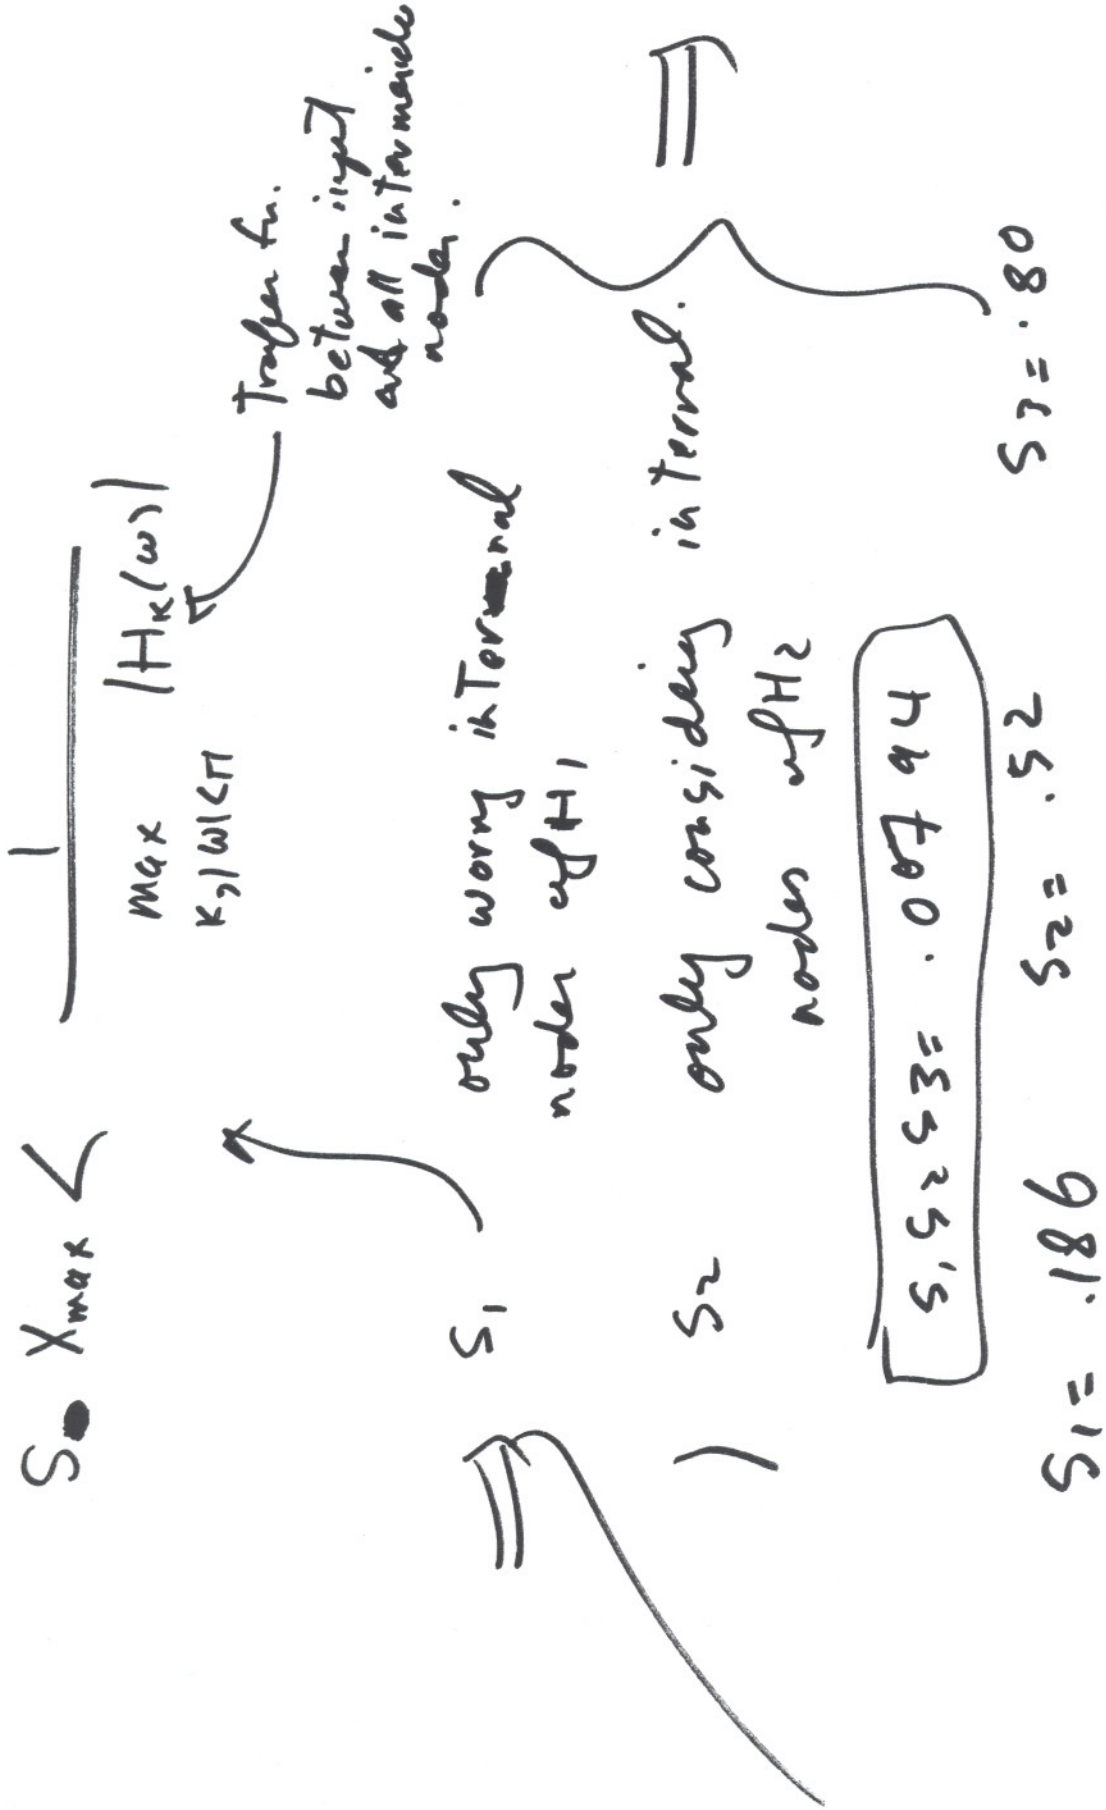 S Xmax < 1
max |Hk(ω)|
k,|ω|<π
Transfer fn.
between input
and all intermediate
nodes.
S1 only worry internal
nodes of H1
S2 only considering internal.
nodes of H2
S1S2S3 = .0794
S1 = .186 S2 = .52 S3 = .80